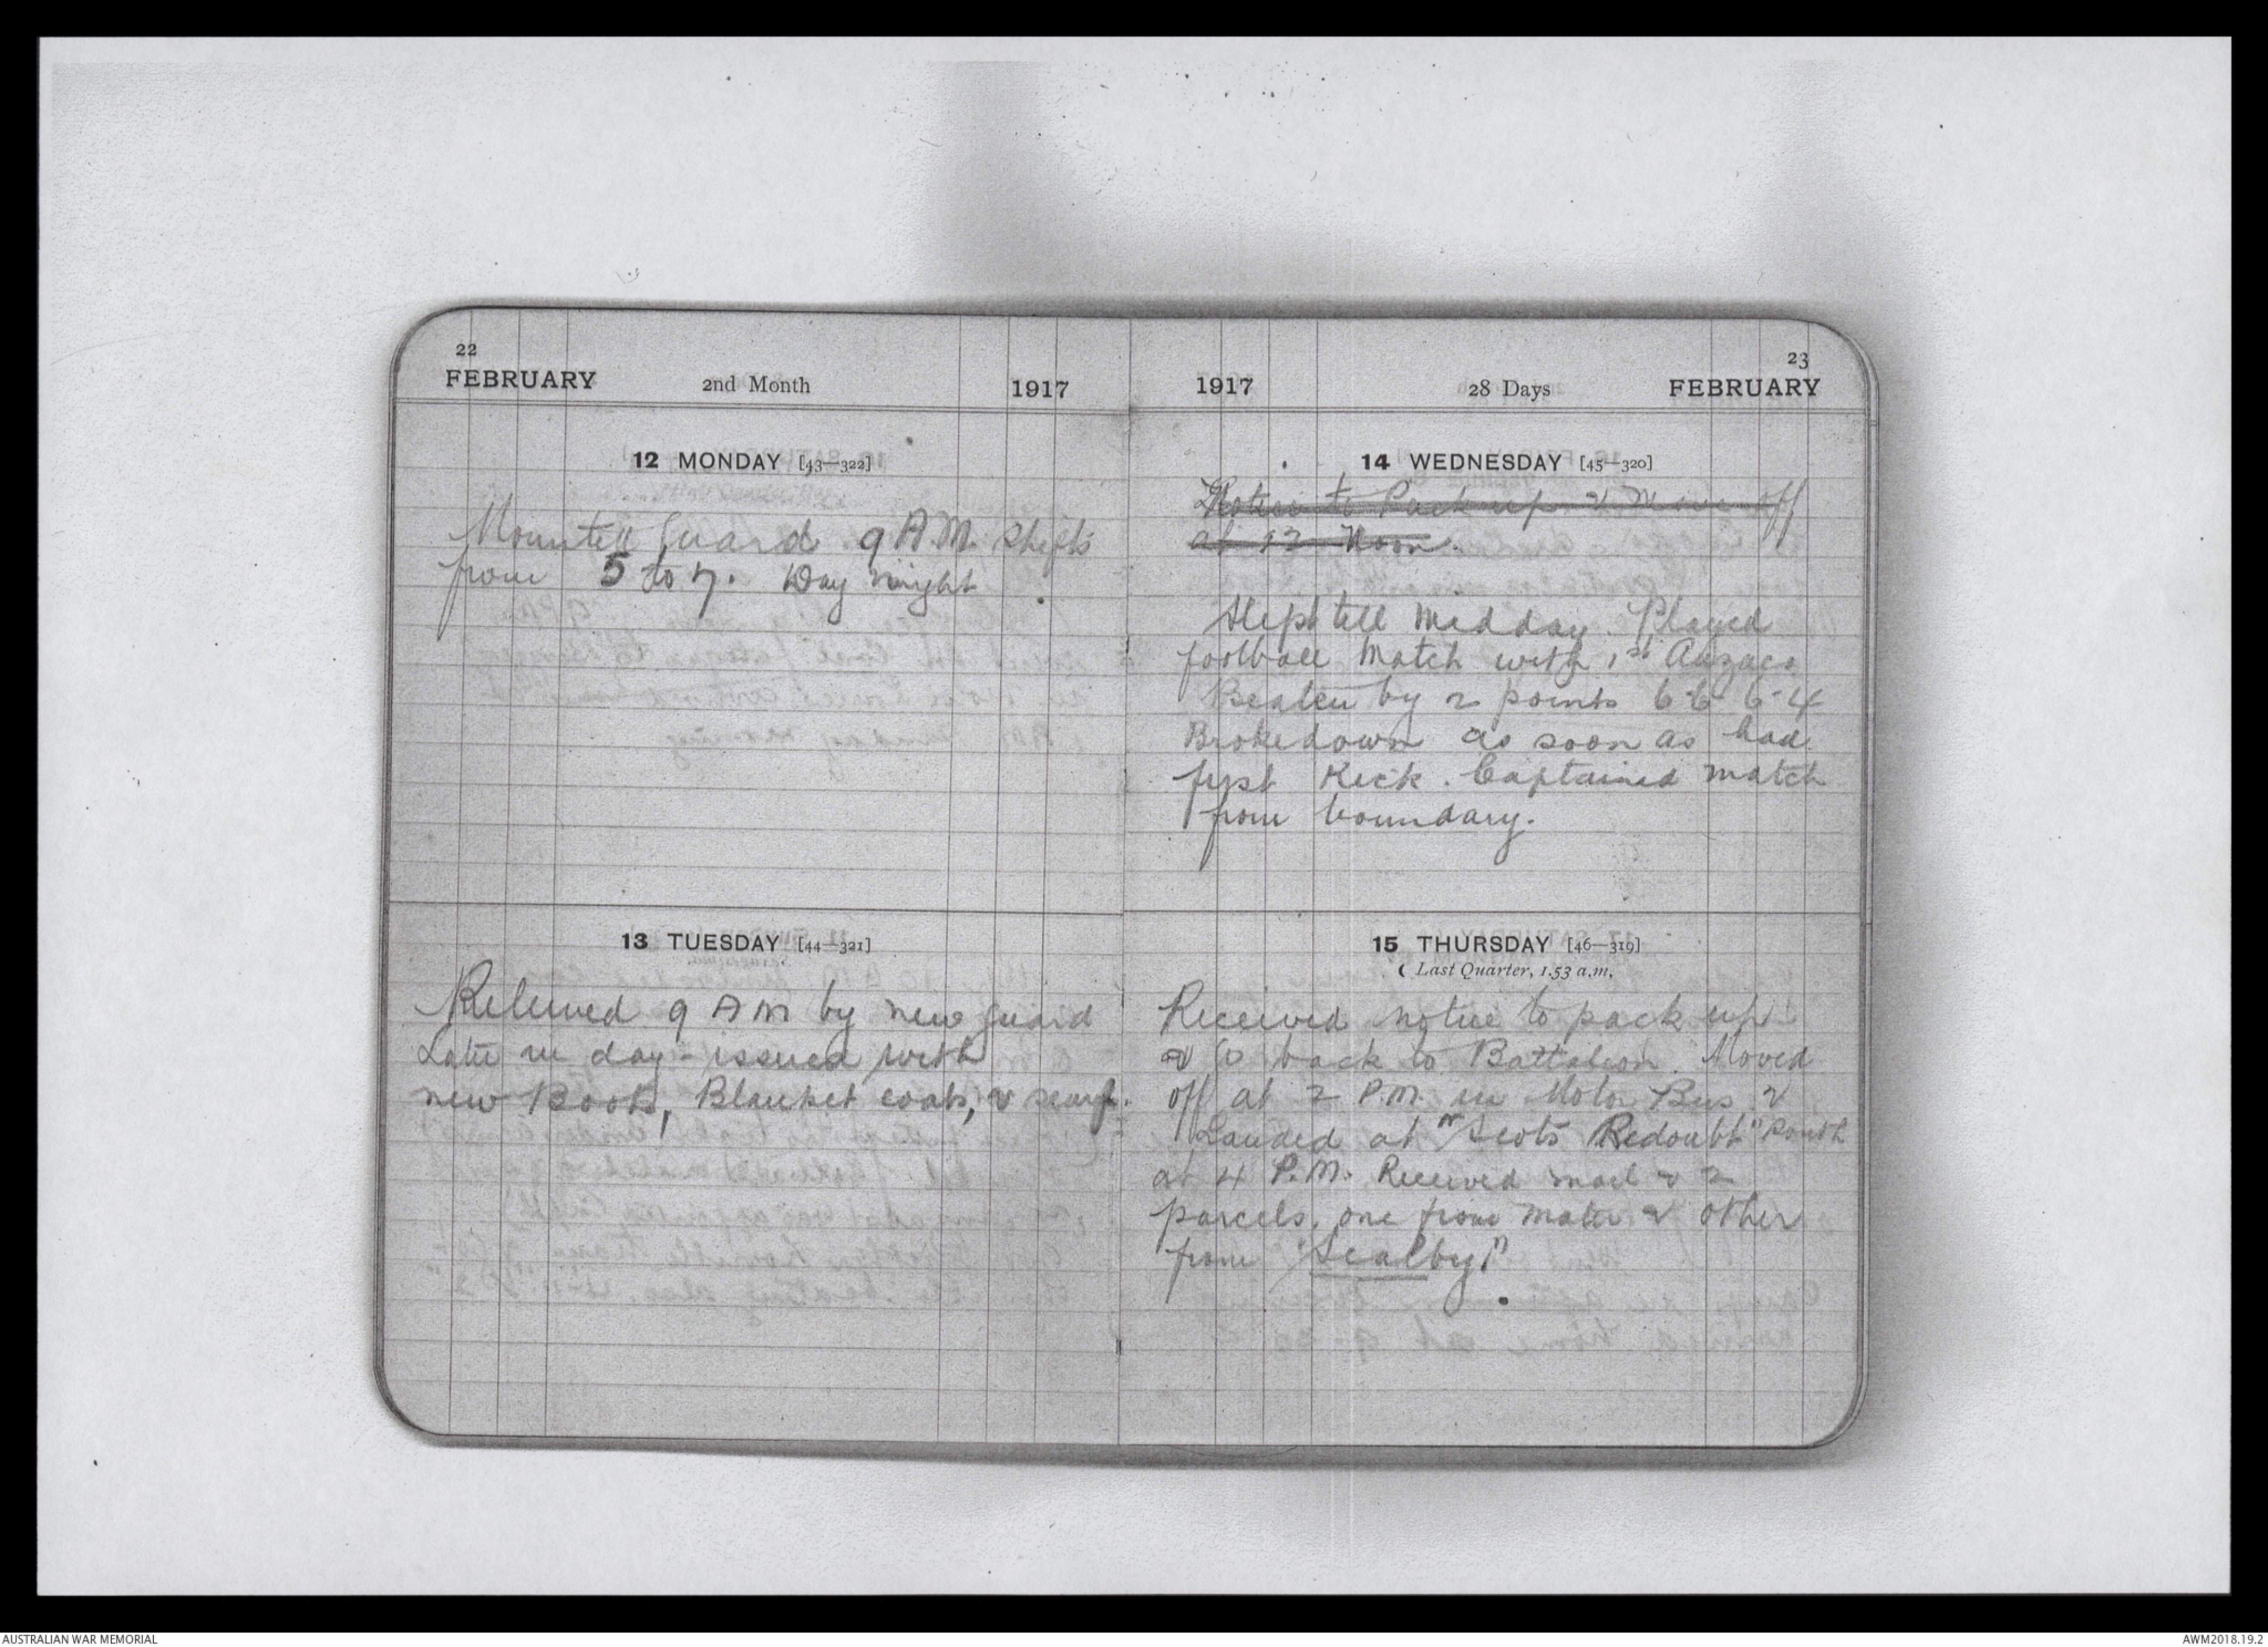 22
FEBRUARY 2nd Month 1917
12 MONDAY [43—322]
Mounted Guard 9 A.M. Shifts
from 5 to 7. Day night
13 TUESDAY [44—321]
Relieved 9 AM by new guard
Late in day - issued with
new Boots, Blanket coats, & scarf.
23
1917 28 Days FEBRUARY
14 WEDNESDAY [45—320]
Notice to Pack up & Move off
at 12 Noon.
Slept till midday. Played
football match with 1st Anzacs
Beaten by 2 points 6-6 6-4
Brokedown as soon as had
first Kick. Captained match
from boundary.
15 THURSDAY [46—319]
( Last Quarter, 1.53 a.m.
Received notice to pack up
& back to Battalion. Moved
off at 2 P.M. in Motor Bus &
Landed at "Scots Redoubt" South
at 4 P.M. Received mail & 2
parcels, one from mater & other
from "Scalby"
AUSTRALIAN WAR MEMORIAL
AWM2018.19.2